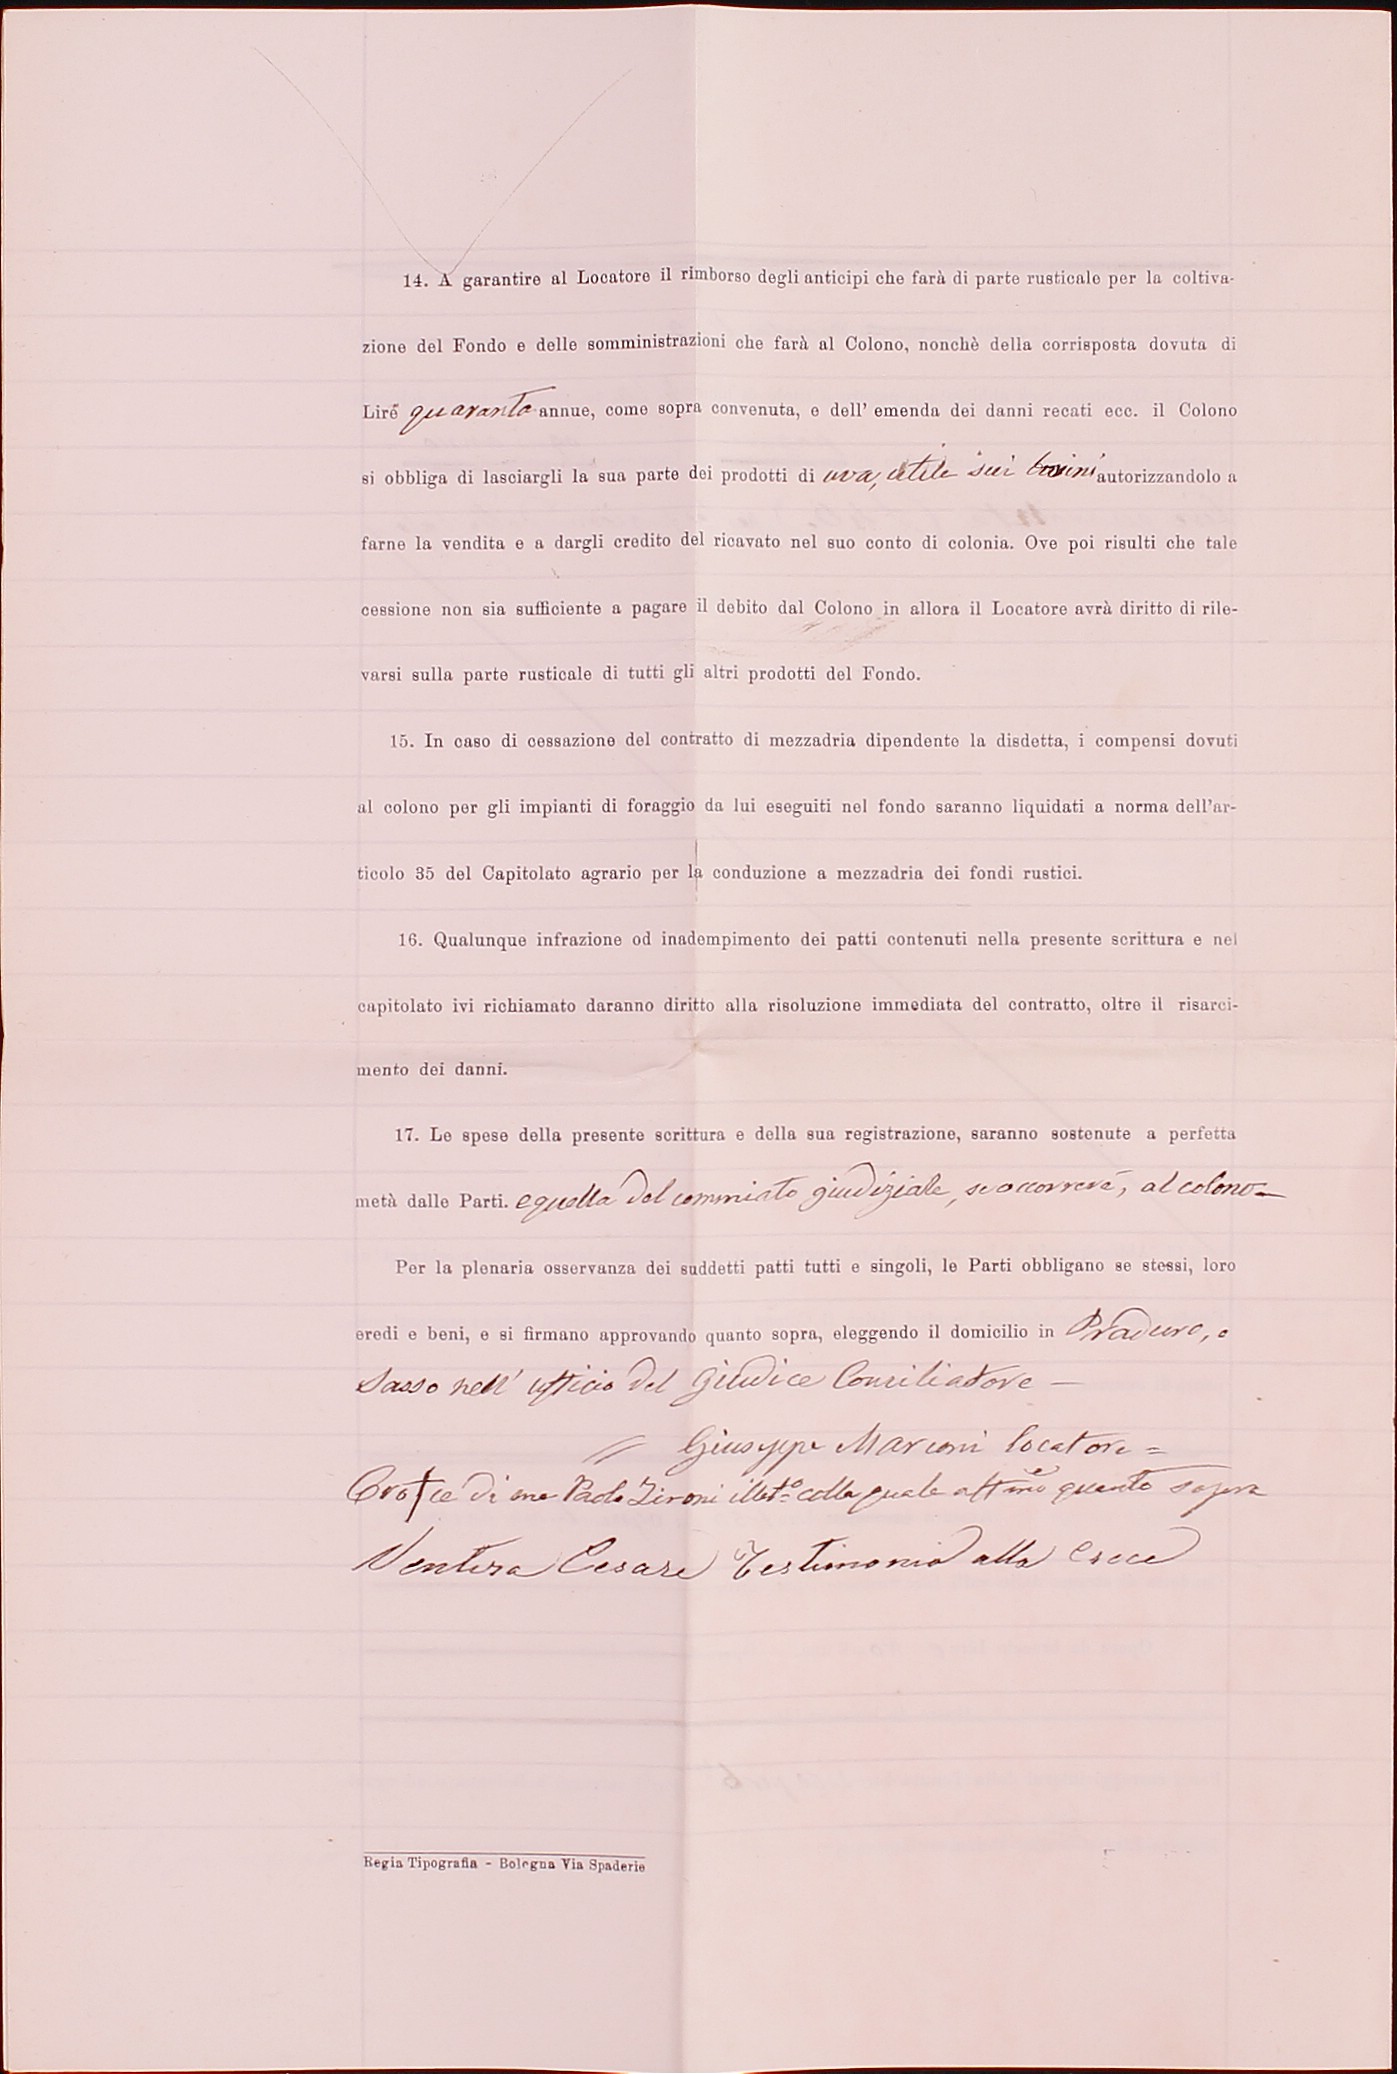 14. A garantire al Locatore il rimborso degli anticipi che farà di parte rusticale per la coltiva-
zione del Fondo e delle somministrazioni che farà al Colono, nonchè della corrisposta dovuta di
Lire quaranta annue, come sopra convenuta, e dell' emenda dei danni recati ecc. il Colono
si obbliga di lasciargli la sua parte dei prodotti di uva, utile sui bovini autorizzandolo a
farne la vendita e a dargli credito del ricavato nel suo conto di colonia. Ove poi risulti che tale
cessione non sia sufficiente a pagare il debito dal Colono in allora il Locatore avrà diritto di rile-
varsi sulla parte rusticale di tutti gli altri prodotti del Fondo.
15. In caso di cessazione del contratto di mezzadria dipendente la disdetta, i compensi dovuti
al colono per gli impianti di foraggio da lui eseguiti nel fondo saranno liquidati a norma dell'ar-
ticolo 35 del Capitolato agrario per la conduzione a mezzadria dei fondi rustici.
16. Qualunque infrazione od inadempimento dei patti contenuti nella presente scrittura e nel
capitolato ivi richiamato daranno diritto alla risoluzione immediata del contratto, oltre il risarci-
mento dei danni.
17. Le spese della presente scrittura e della sua registrazione, saranno sostenute a perfetta
metà dalle Parti. e quella del commiato giudiziale, se occorrerà, al colono—
Per la plenaria osservanza dei suddetti patti tutti e singoli, le Parti obbligano se stessi, loro
eredi e beni, e si firmano approvando quanto sopra, eleggendo il domicilio in Praduro, e
Sasso nell' ufficio del Giudice Conciliatore —
Giuseppe Marconi locatore =
Cro†ce di me Paolo Zironi illet.º colla quale affermo quanto sopra
Ventura Cesare Testimonio alla Croce
Regia Tipografia - Bologna Via Spaderie